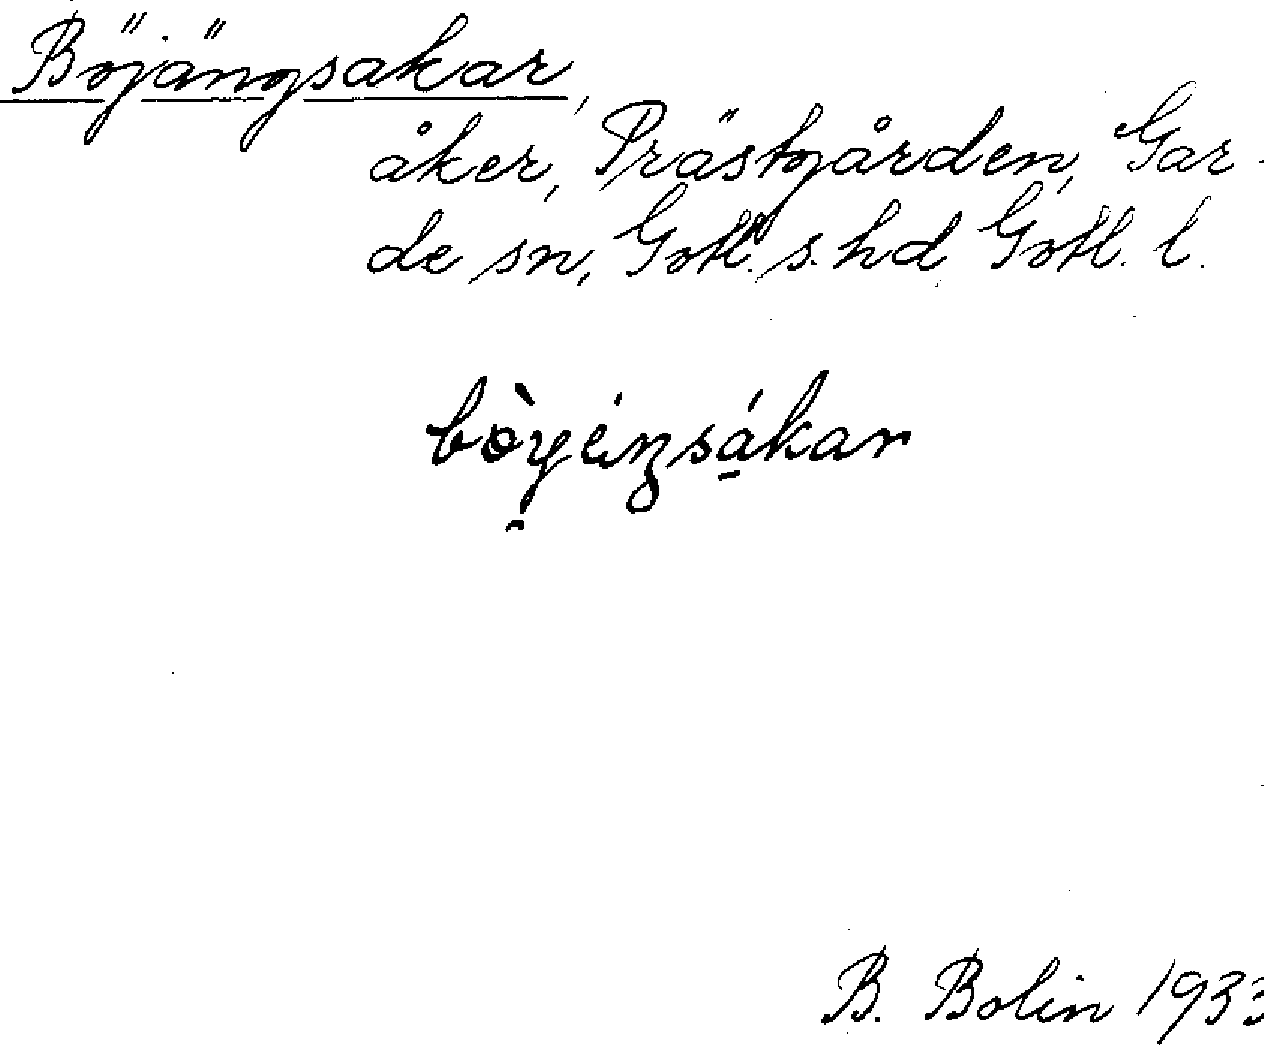 Böjängsakar,
åker, Prästgården, Gar-
de sn, Gotl. s. hd, Gotl. l.
bòyéŋsákar
B. Bolin 1933